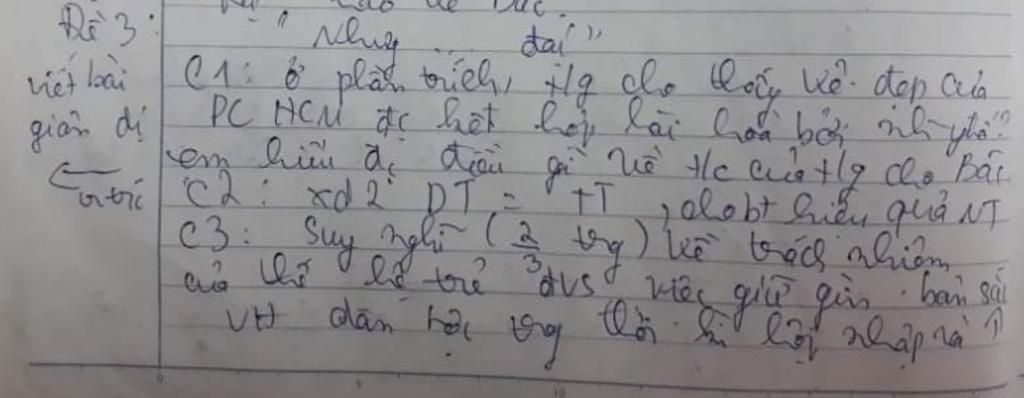 Đề 3:
"Nhưng ... đại"
viết bài
giản dị
C1: ở phần trích, t/g cho thấy vẻ đẹp của
PC HCM đc kết hợp hài hoà bởi nh ytố?
em hiểu đc điều gì về t/c của t/g cho Bác
C2: xđ 2 DT = TT, cho bt hiệu quả NT
C3: Suy nghĩ (2/3 trg) về trách nhiệm
của thế hệ trẻ đvs việc giữ gìn bản sắc
VH dân tộc trg thời kì hội nhập và